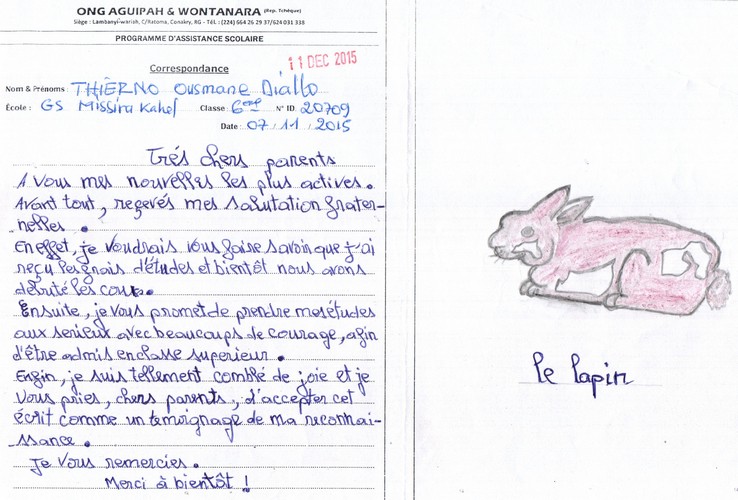 ONG AGUIPAH & WONTANARA (Rep. Tchèque)
Siège : Lambanyi-warioh, C/Ratoma, Conakry, RG - TéL : (224) 664 26 29 37/624 031 338
PROGRAMME D'ASSISTANCE SCOLAIRE
11 DEC 2015
Correspondance
Nom & Prénoms : THIERNO Ousmane Diallo
École : GS Missira Kahel Classe : 6ème N° ID: 20709
Date : 07/11/2015
Trés chers parents
A Vous mes nouvelles les plus actives.
Avant tout, reçevés mes salutation frater-
nelles.
En effet, je voudrais vous faire savoir que j'ai
reçu les frais d'études et bientôt nous avons
débuté les cour.
Ensuite, je vous promet de prendre mes études
aux serieux avec beaucoups de courage, afin
d'être admis en classe superieur.
Enfin, je suis tellement comblé de joie et je
vous pries, chers parents, d'accepter cet
écrit comme un temoignage de ma reconnai-
ssance.
Je vous remercies.
Merci à bientôt !
le lapin